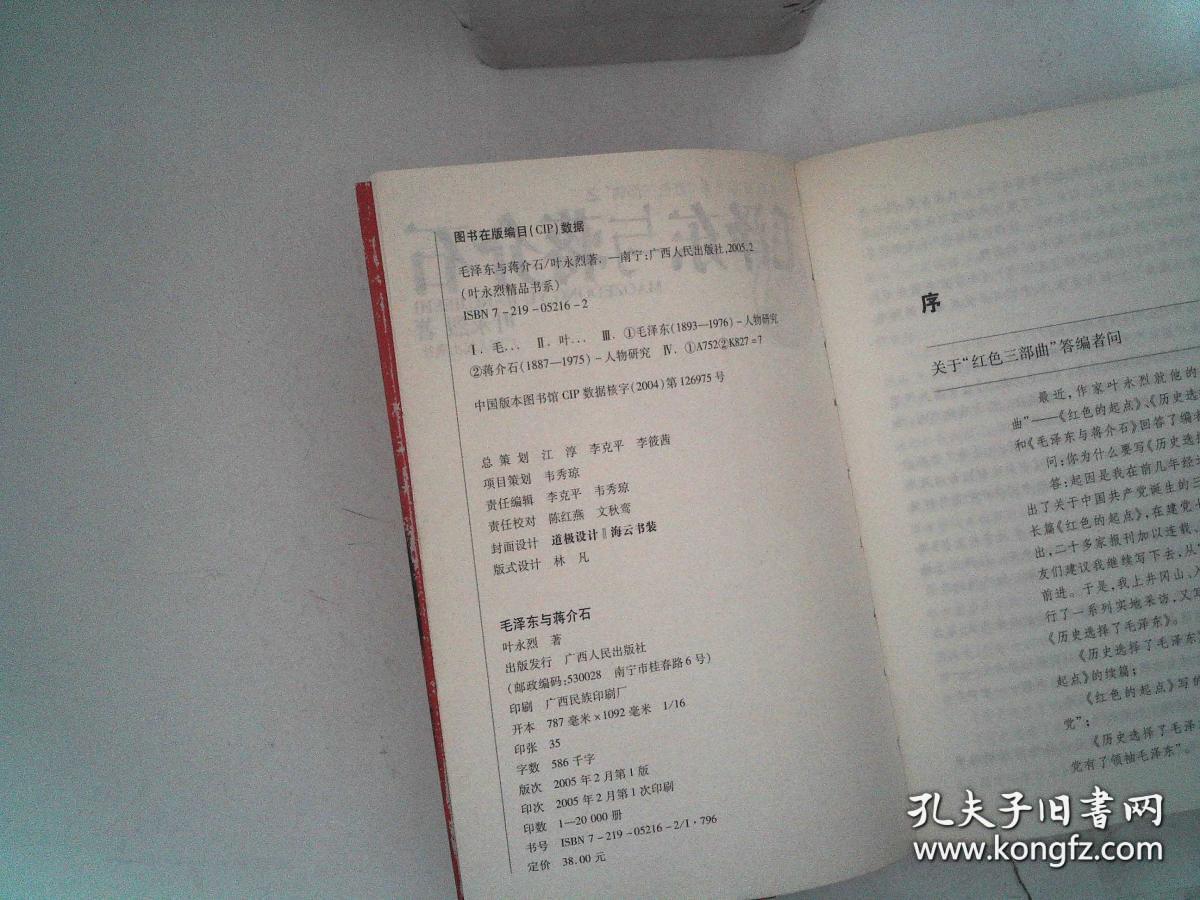 图书在版编目(CIP)数据
毛泽东与蒋介石/叶永烈著.—南宁:广西人民出版社,2005.2
(叶永烈精品书系)
ISBN 7-219-05216-2
Ⅰ.毛... Ⅱ.叶... Ⅲ.①毛泽东(1893—1976)-人物研究
②蒋介石(1887—1975)-人物研究 Ⅳ.①A752②K827=7
中国版本图书馆CIP数据核字(2004)第126975号
总策划 江淳 李克平 李筱茜
项目策划 韦秀琼
责任编辑 李克平 韦秀琼
责任校对 陈红燕 文秋鸾
封面设计 道极设计‖海云书装
版式设计 林凡
毛泽东与蒋介石
叶永烈 著
出版发行 广西人民出版社
(邮政编码:530028 南宁市桂春路6号)
印刷 广西民族印刷厂
开本 787毫米×1092毫米 1/16
印张 35
字数 586千字
版次 2005年2月第1版
印次 2005年2月第1次印刷
印数 1—20 000册
书号 ISBN 7-219-05216-2/I·796
定价 38.00元
序
关于“红色三部曲”答编者问
最近,作家叶永烈就他的
曲”——《红色的起点》、《历史选
和《毛泽东与蒋介石》回答了编者
问:你为什么要写《历史选择
答:起因是我在前几年经过
出了关于中国共产党诞生的三
长篇《红色的起点》,在建党
出,二十多家报刊加以连载,
友们建议我继续写下去,从“
前进。于是,我上井冈山、入
行了一系列实地采访,又写
《历史选择了毛泽东》。
《历史选择了毛泽东
起点》的续篇;
《红色的起点》写的
党”;
《历史选择了毛泽
党有了领袖毛泽东”。
孔夫子旧书网
www.kongfz.com